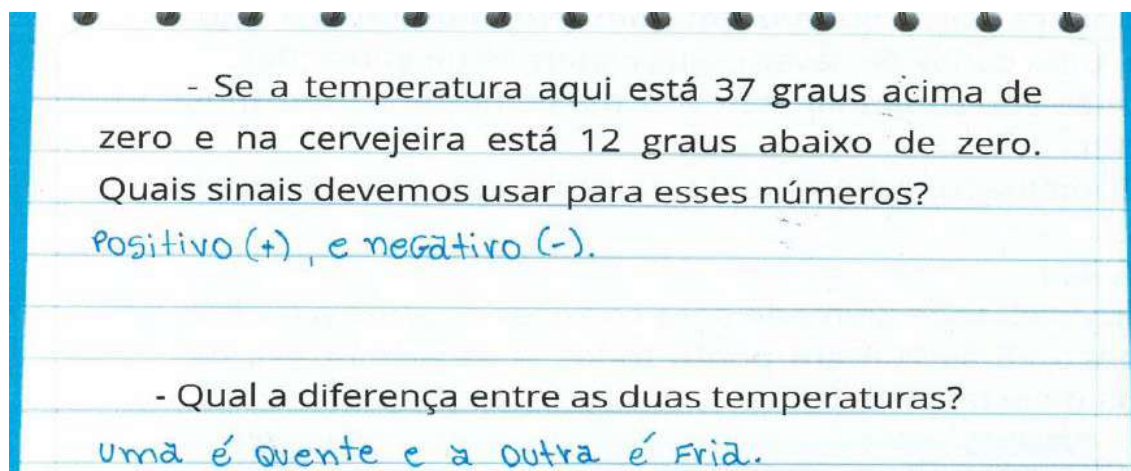 - Se a temperatura aqui está 37 graus acima de
zero e na cervejeira está 12 graus abaixo de zero.
Quais sinais devemos usar para esses números?
Positivo (+), e negativo (-).
- Qual a diferença entre as duas temperaturas?
uma é quente e a outra é Fria.